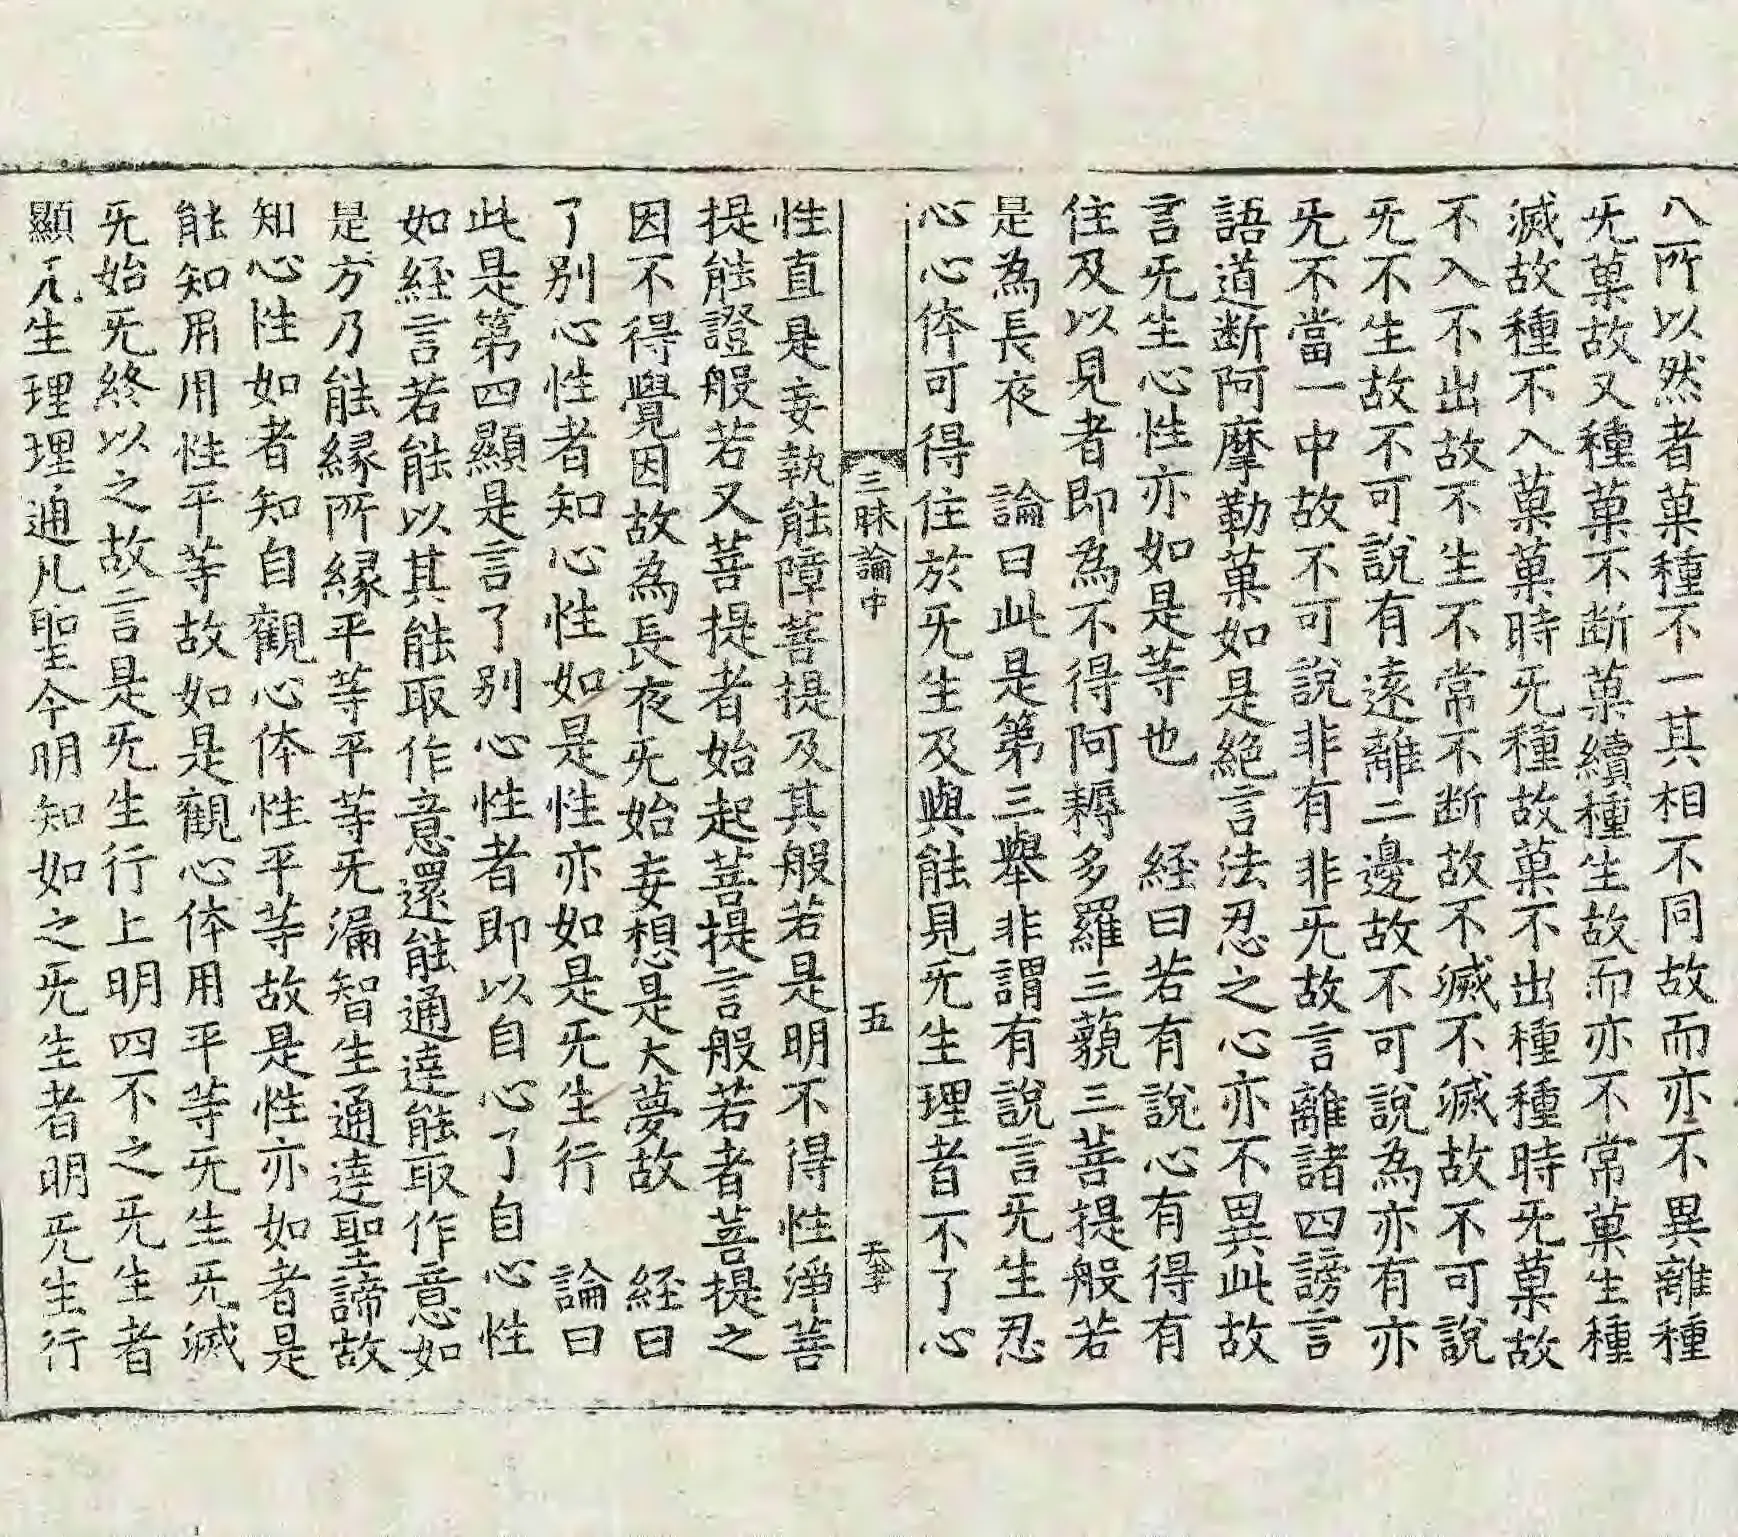 八所以然者菓種不一其相不同故而亦不異離種
旡菓故又種菓不断菓續種生故而亦不常菓生種
滅故種不入菓菓時旡種故菓不出種種時旡菓故
不入不出故不生不常不断故不滅不滅故不可說
旡不生故不可說有遠離二邊故不可說為亦有亦
旡不當一中故不可說非有非旡故言離諸四謗言
語道断阿摩勒菓如是絶言法忍之心亦不異此故
言旡生心性亦如是等也　經曰若有說心有得有
住及以見者即為不得阿耨多羅三藐三菩提般若
是為長夜　論曰此是第三舉非謂有說言旡生忍
心心体可得住於旡生及與能見旡生理者不了心
三昧論中　五　天孝
性直是妄執能障菩提及其般若是明不得性淨菩
提能證般若又菩提者始起菩提言般若者菩提之
因不得覺因故為長夜旡始妄想是大夢故　經曰
了别心性者知心性如是性亦如是旡生行　論曰
此是第四顯是言了别心性者即以自心了自心性
如經言若能以其能取作意還能通達能取作意如
是方乃能縁所縁平等平等旡漏智生通達聖諦故
知心性如者知自觀心体性平等故是性亦如者是
能知用用性平等故如是觀心体用平等旡生旡滅
旡始旡終以之故言是旡生行上明四不之旡生者
顯旡生理理通凡聖今明知如之旡生者明旡生行